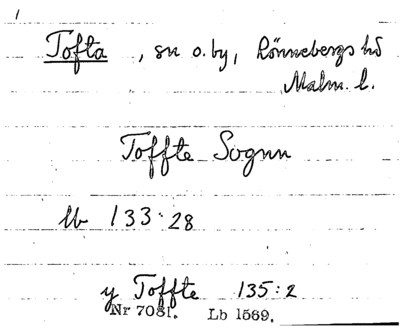 1
Tofta, sn o. by, Rönnebergs hd
Malm. l.
Toffte Sognn
lb 133:28
y Toffte 135:2
Nr 7081. Lb 1569.